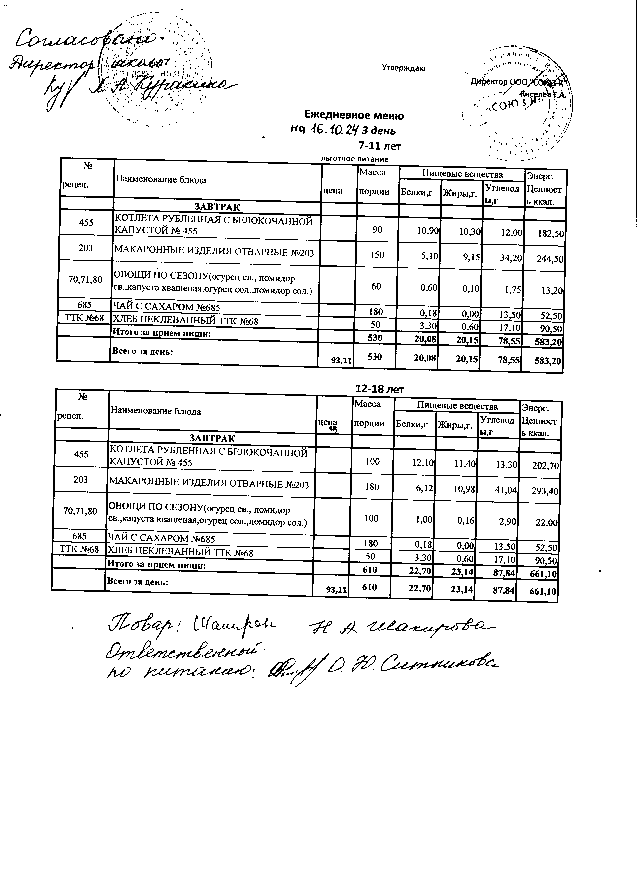 Согласовано.
Директор школы
Л А Куракина
Утверждаю
Директор ООО
Киселев Е.А.
СОЮЗ
Ежедневное меню
на 16.10.24 3 день
7-11 лет
льготное питание
№ рецеп. Наименование блюда цена Масса порции Пищевые вещества Энерг. Ценность ккал.
Белки,г Жиры,г. Углеводы,г
ЗАВТРАК
455 КОТЛЕТА РУБЛЕННАЯ С БЕЛОКОЧАННОЙ КАПУСТОЙ № 455 90 10,90 10,30 12,00 182,50
203 МАКАРОННЫЕ ИЗДЕЛИЯ ОТВАРНЫЕ №203 150 5,10 9,15 34,20 244,50
70,71,80 ОВОЩИ ПО СЕЗОНУ(огурец св., помидор св.,капуста квашеная,огурец сол.,помидор сол.) 60 0,60 0,10 1,75 13,20
685 ЧАЙ С САХАРОМ №685 180 0,18 0,00 13,50 52,50
ТТК №68 ХЛЕБ ПЕКЛЕВАННЫЙ ТТК №68 50 3,30 0,60 17,10 90,50
Итого за прием пищи: 530 20,08 20,15 78,55 583,20
Всего за день: 93,11 530 20,08 20,15 78,55 583,20
12-18 лет
№ рецеп. Наименование блюда цена Масса порции Пищевые вещества Энерг. Ценность ккал.
Белки,г Жиры,г. Углеводы,г
ЗАВТРАК
455 КОТЛЕТА РУБЛЕННАЯ С БЕЛОКОЧАННОЙ КАПУСТОЙ № 455 100 12,10 11,40 13,30 202,70
203 МАКАРОННЫЕ ИЗДЕЛИЯ ОТВАРНЫЕ №203 180 6,12 10,98 41,04 293,40
70,71,80 ОВОЩИ ПО СЕЗОНУ(огурец св., помидор св.,капуста квашеная,огурец сол.,помидор сол.) 100 1,00 0,16 2,90 22,00
685 ЧАЙ С САХАРОМ №685 180 0,18 0,00 13,50 52,50
ТТК №68 ХЛЕБ ПЕКЛЕВАННЫЙ ТТК №68 50 3,30 0,60 17,10 90,50
Итого за прием пищи: 610 22,70 23,14 87,84 661,10
Всего за день: 93,11 610 22,70 23,14 87,84 661,10
Повар: Шакиров Н А Шакирова
Ответственной
по питанию: О. Ю. Ситникова